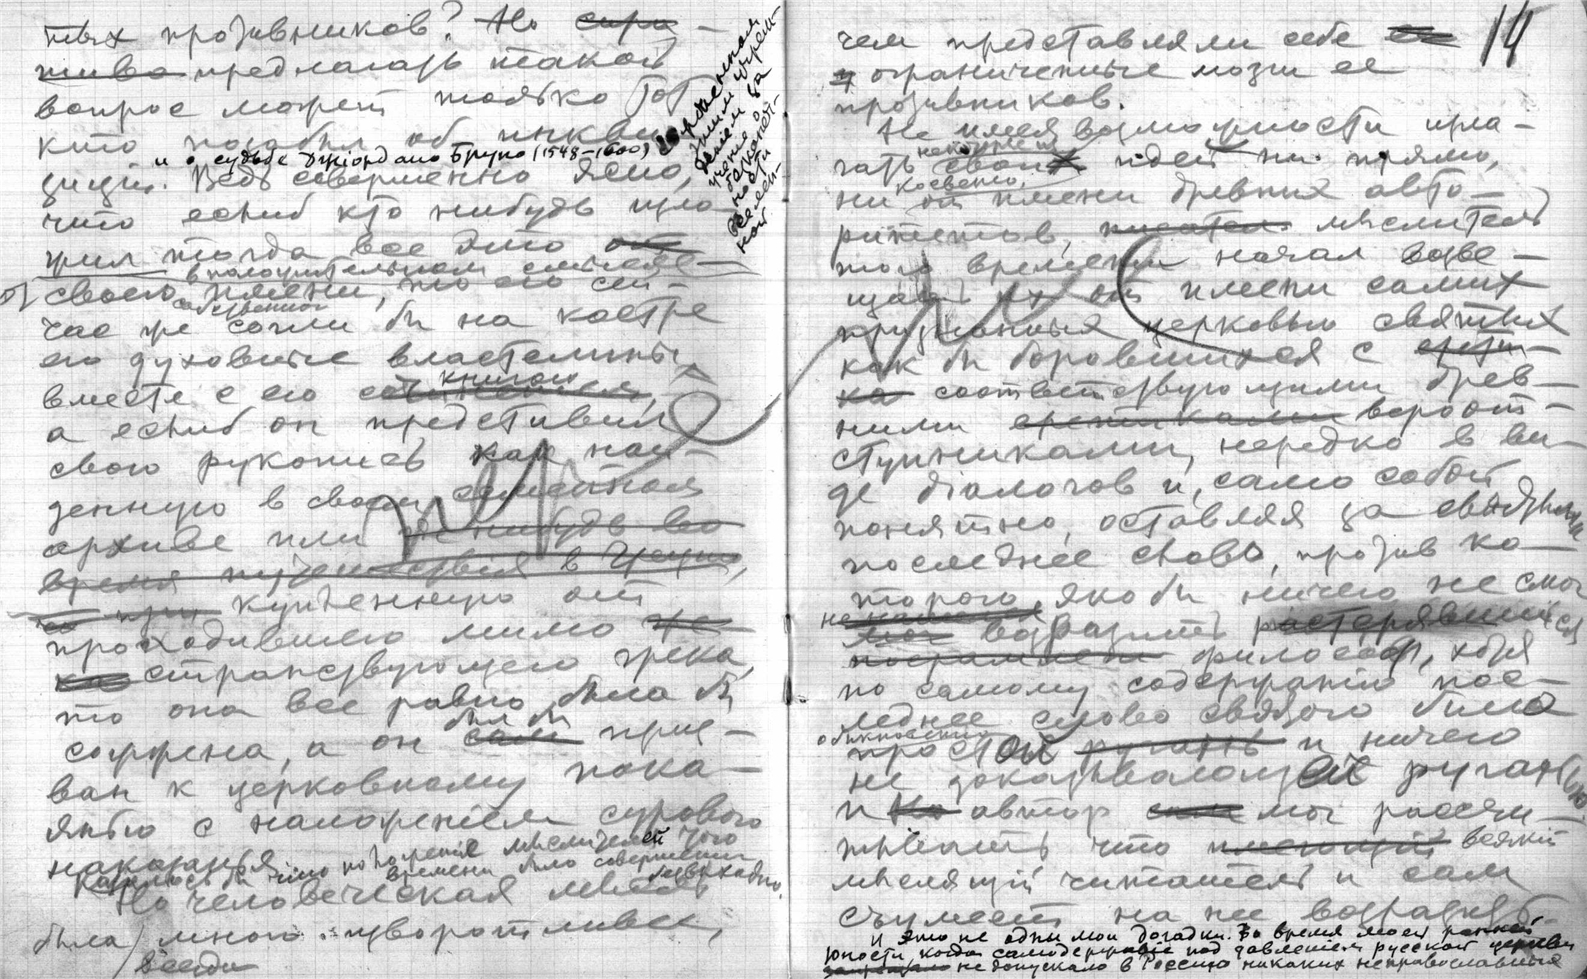 тых противников? Но
предлагать такой
вопрос может только тот
кто позабыл об инкви-
и о судьбе Джіордано Бруно (1548-1600)
зиции. Ведь совершенно ясно,
что еслиб кто нибудь изло-
жил тогда все это от
в положительном смысле
своего имени, то его сей-
собственного
час же сожгли бы на костре
его духовные властелины
вместе с его книгой
а еслиб он представил
свою рукопись как най-
денную в своем семейном
архиве или где нибудь во
время путешествія в Грецію,
купленную от
проходившего мимо
странствующего грека,
то она все равно была бы
был бы
сожжена, а он сам приз-
ван к церковному пока-
янію с наложеніем сурового
наказанія
Казалось бы что положеніе мыслителей того
времени было совершенно безвыходно.
Но человеческая мысль
была много изворотливее,
всегда
14
чем представляли себе
ограниченные мозги ее
противников.
Не имея возможности изла-
гать свои идеи ни прямо,
косвенно,
ни от имени древних авто-
ритетов, мыслитель
того времени начал возве-
щать их от имени самих
признанных церковью святых
как бы боровшихся с
соответствующими древ-
ними еретиками вероот-
ступниками, нередко в ви-
де діалогов и, само собой
понятно, оставляя за святым
последнее слово, против ко-
торого якобы ничего не смог
возразить растерявшийся
философ, хотя
по самому содержанію пос-
леднее слово святого было
обыкновенно
простой ругань и ничего
не доказывающей руганью
и автор мог рассчи-
тывать что имеющий всякий
мыслящій читатель и сам
съумеет на нее возразить
И это не одни мои догадки. Во время моей ранней
юности, когда самодержавіе под давленіем русской церкви
не допускало в Россию никаких неправославных